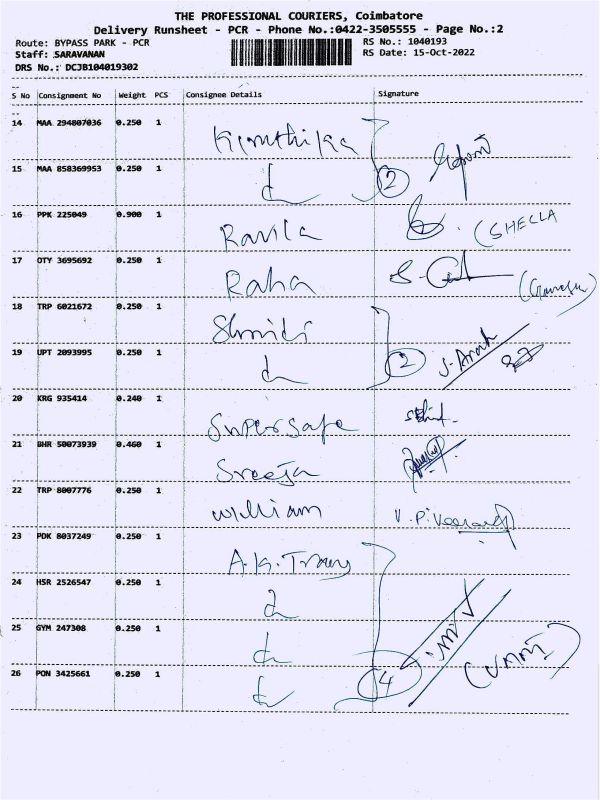 THE PROFESSIONAL COURIERS, Coimbatore
Delivery Runsheet - PCR - Phone No.:0422-3505555 - Page No.:2
Route: BYPASS PARK - PCR
RS No.: 1040193
Staff: SARAVANAN
RS Date: 15-Oct-2022
DRS No.: DCJB104019302
S No Consignment No Weight PCS Consignee Details Signature
14 MAA 294807036 0.250 1
15 MAA 858369953 0.250 1 2
16 PPK 225049 0.900 1 Ravila (SHELLA
17 OTY 3695692 0.250 1 Raha
18 TRP 6021672 0.250 1
19 UPT 2093995 0.250 1 2
20 KRG 935414 0.240 1 Supersafe
21 BHR 50073939 0.460 1 Sreeja
22 TRP 8007776 0.250 1 William
23 PDK 8037249 0.250 1
24 HSR 2526547 0.250 1
25 GYM 247308 0.250 1
26 PON 3425661 0.250 1 4